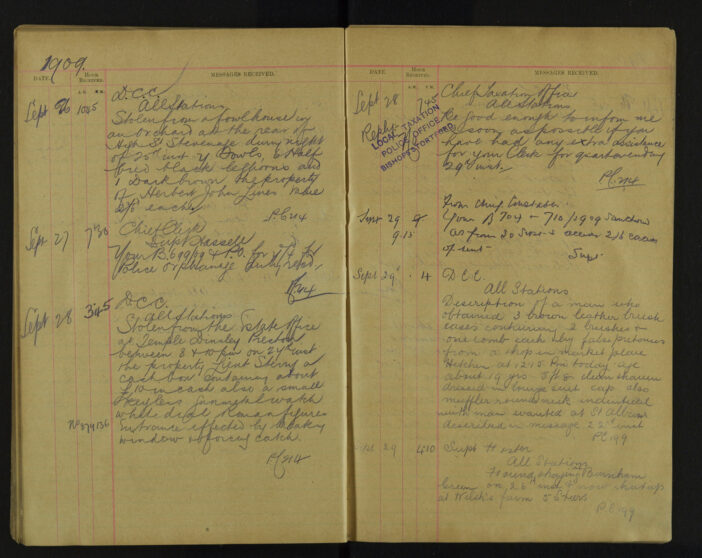 1909.
DATE. HOUR RECEIVED. MESSAGES RECEIVED.
A.M. P.M.
Sept 26 10.45 D.C.C.
All Stations
Stolen from a fowlhouse in
an orchard at the rear of
High St Stevenage during night
of 25th inst 4 Fowls, 3 Half
bred black
1 Dark brown the property
of Herbert John Lines value
2/6 each.
P.C. 214
Sept 27 7.30 Chief Clerk
Supt Hassell
Your B. 699/09 & P.O. for
Police Orphanage duly recd.
PC 214
Sept 28 3.45 D.C.C.
All Stations
Stolen from the Estate Office
at Temple Dinsley Preston
between 8 & 10 pm on 27th inst
the property Lieut a
cash box containing about
£10 in cash also a small
Keyless watch
white dial Roman figures
No 379136
Entrance effected by breaking
window & forcing catch.
PC 214
DATE HOUR RECEIVED. MESSAGES RECEIVED.
A.M. P.M.
Sept 28 7.45 Chief Taxation Office
All Stations
Reply
LOCAL TAXATION
POLICE OFFICE
BISHOP'S STORTFORD
Be good enough to inform me
as soon as possible if you
have had any extra assistance
for your Clerk for quarter ending
29th inst.
PC 214
Sept 29 9 9.15 From Chief Constable
Your B 704 - 710/1909 Sanction
20 from 20
of
Supt
Sept 29th 4 D.C.C.
All Stations
Description of a man who
obtained 3 brown leather brush
cases containing 2 brushes &
one comb each by false pretences
from a shop in market place
Hitchin at 12.15 Pm today age
about 19 yrs 5ft 8 clean shaven
dressed in serge suit cap also
muffler round neck indentical
with man wanted at St Albans
described in message 22nd inst
PC 199
Sept 29 4.10 Supt
All Stations
Found straying Burnham
Green on 26th inst & now
at farm 5 Steers
P.C. 199